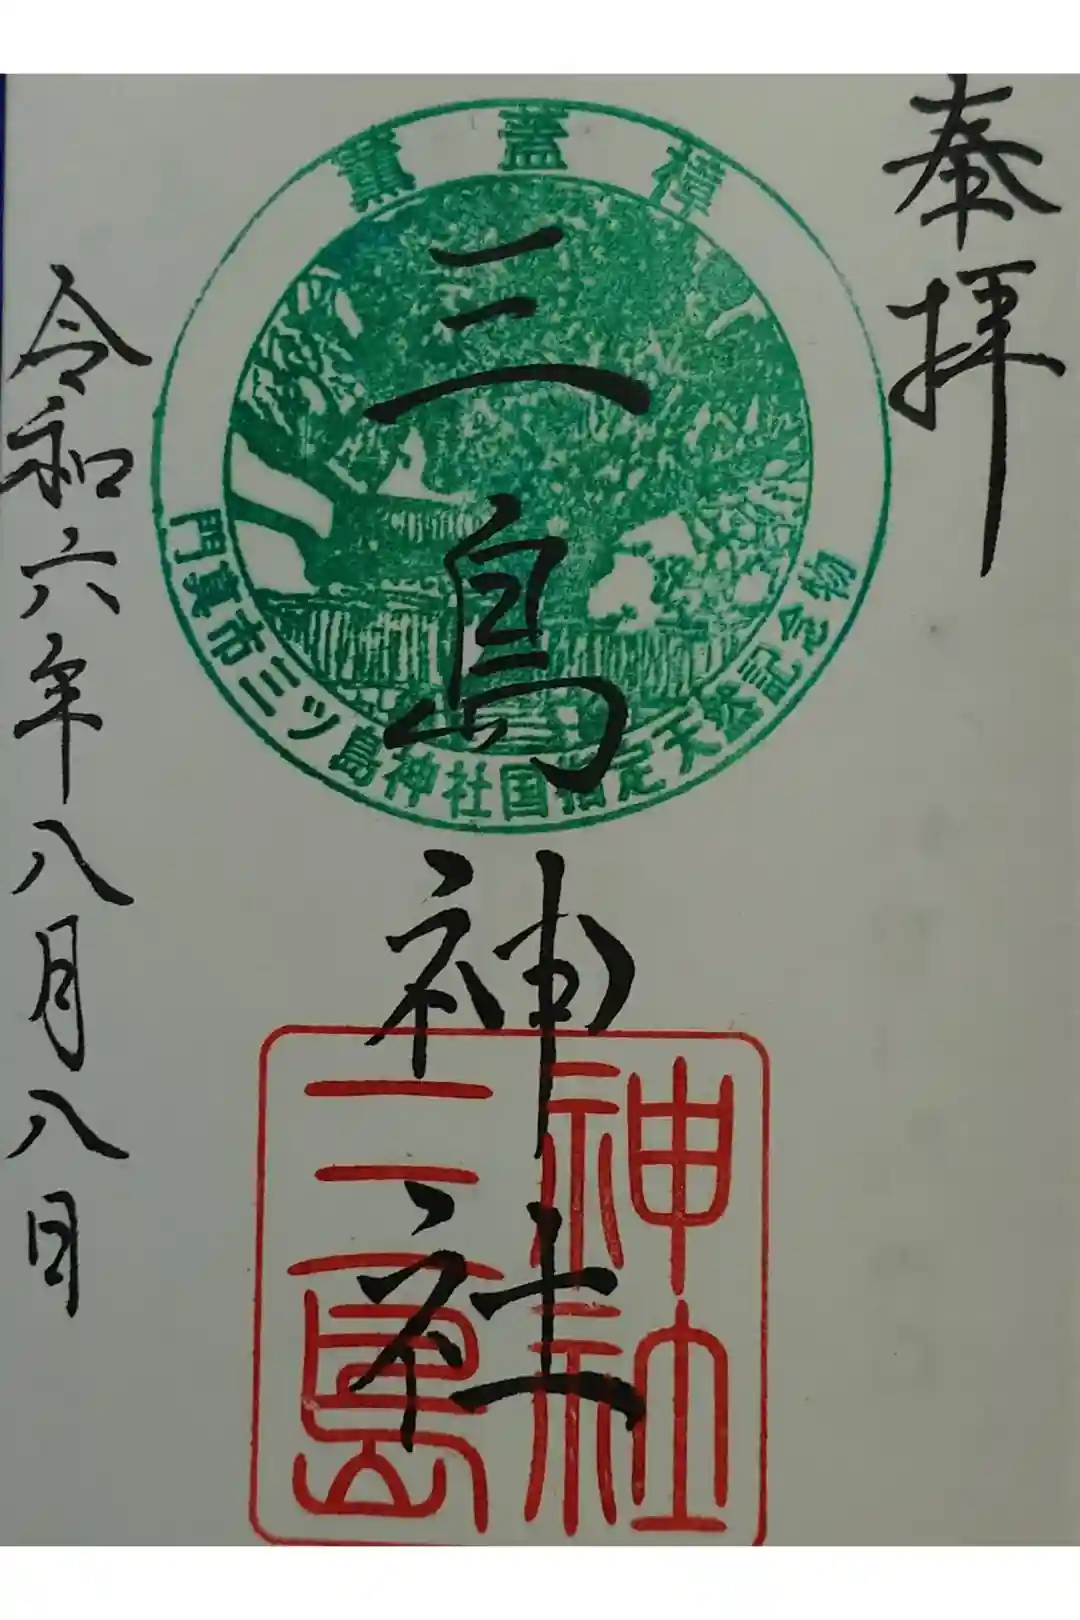 奉拝
薫蓋樟
門真市三ツ島神社国指定天然記念物
三島神社
三島
神社
令和六年八月八日